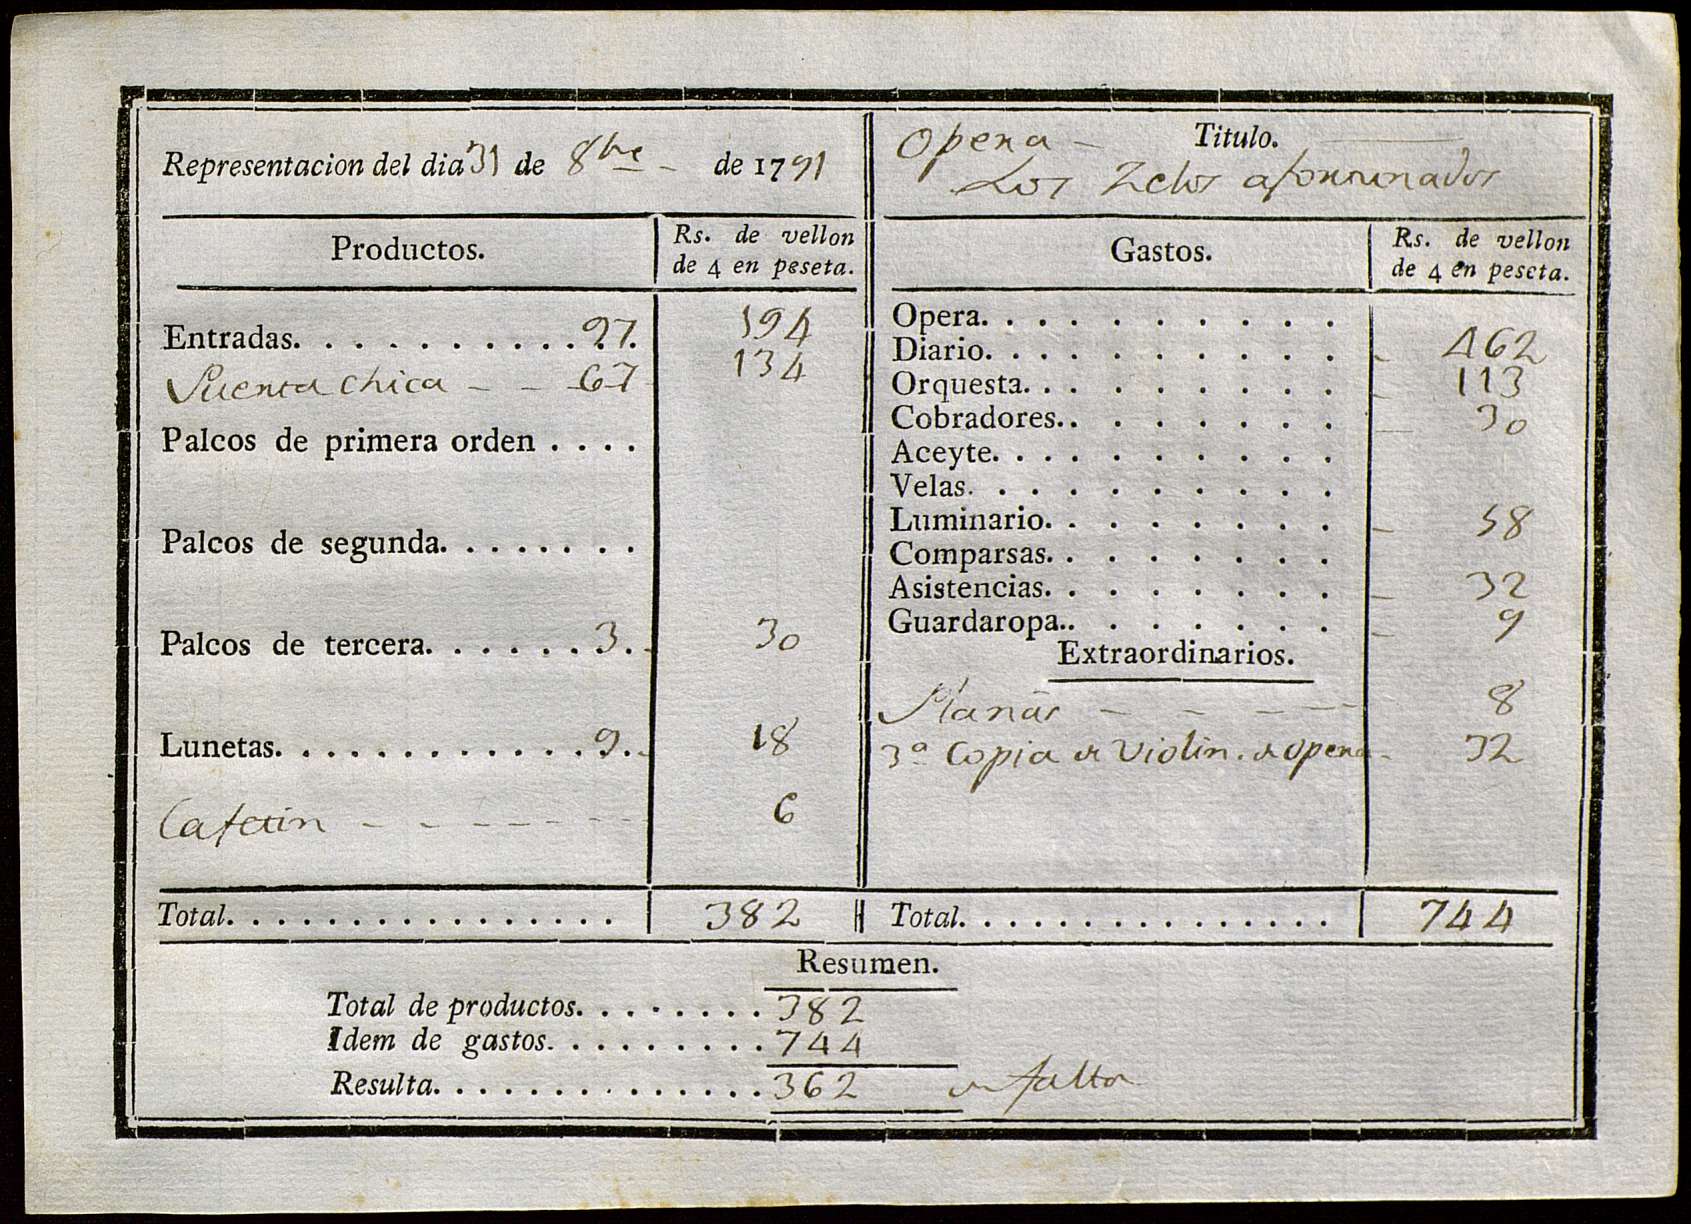 Representacion del dia 31 de 8bre de 1791
Productos.
Rs. de vellon
de 4 en peseta.
Entradas. 97. 194
Puerta chica 67 134
Palcos de primera orden
Palcos de segunda.
Palcos de tercera. 3. 30
Lunetas. 9. 18
Cafetin 6
Total. 382
Titulo.
Opera
Los Zelos afortunados
Gastos.
Rs. de vellon
de 4 en peseta.
Opera.
Diario. 462
Orquesta. 113
Cobradores.. 30
Aceyte.
Velas.
Luminario. 58
Comparsas.
Asistencias. 32
Guardaropa.. 9
Extraordinarios.
Planas 8
3ª Copia de Violin. de opera 32
Total. 744
Resumen.
Total de productos. 382
Idem de gastos. 744
Resulta. 362 en falta